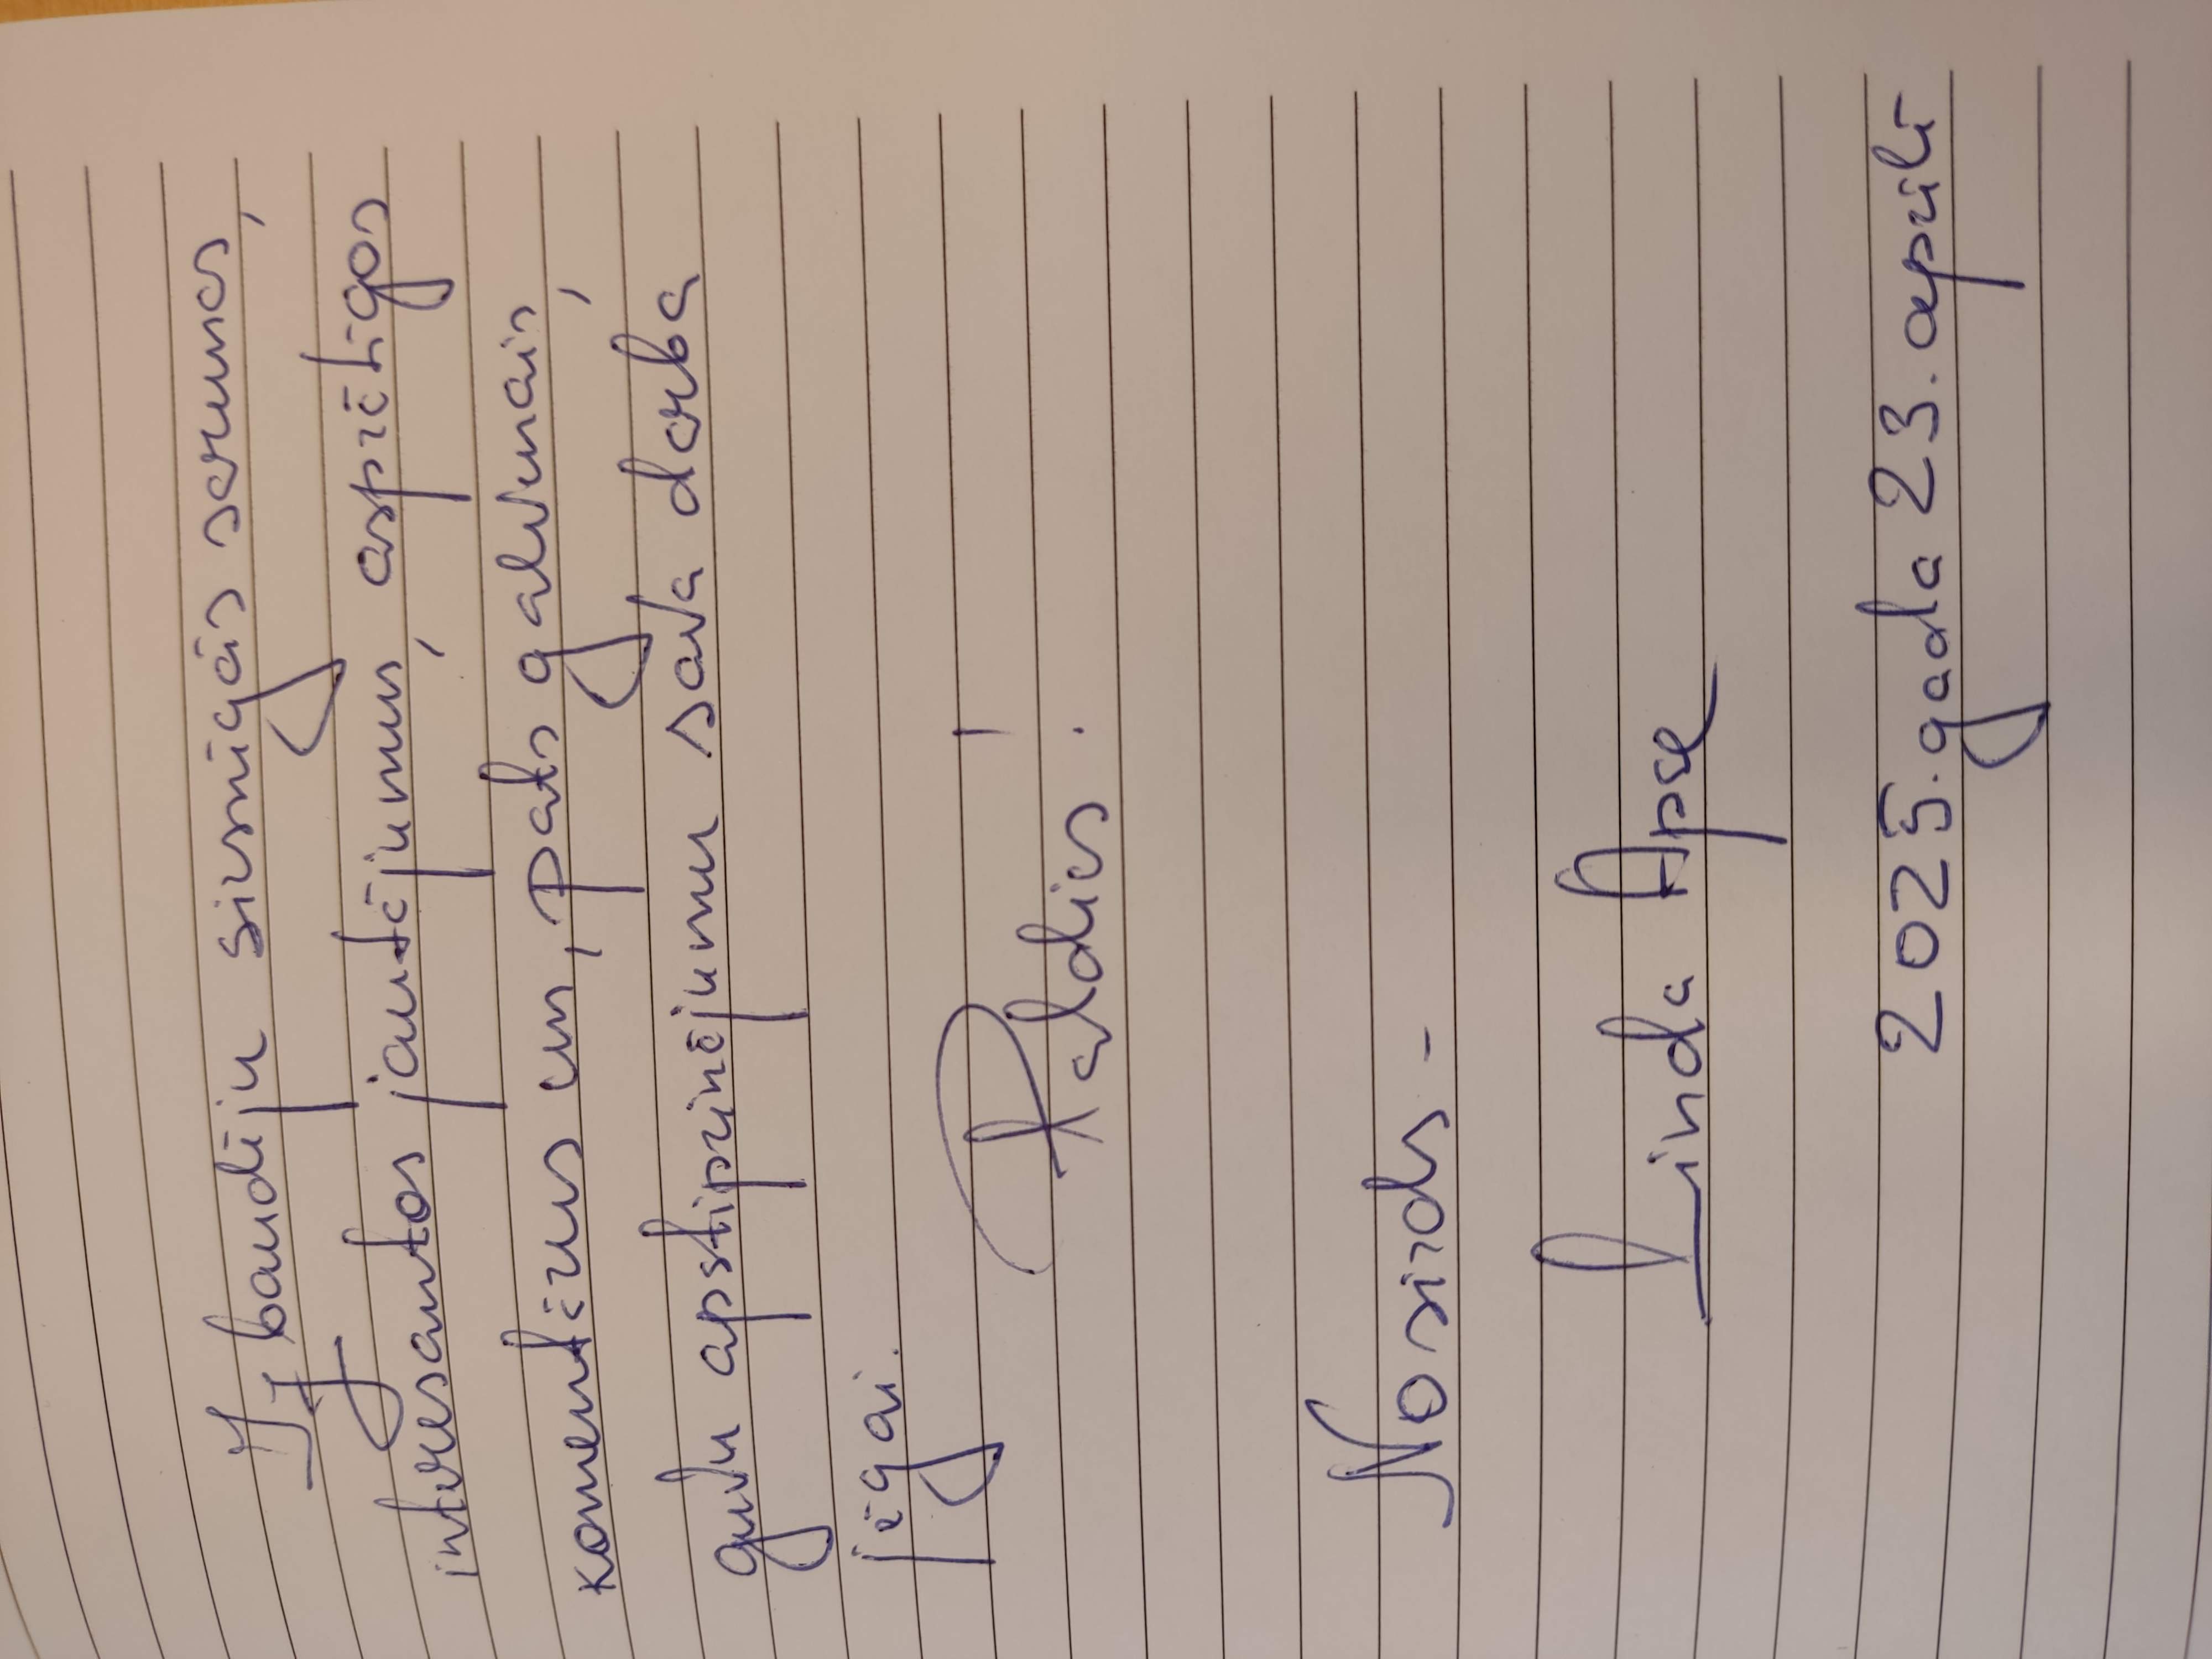 Izbaudīju sirsnīgās sarunas,
interesantos jautājumus, asprātīgos
komentārus un, pats galvenais,
guvu apstiprinājumu sava darba
jēgai.
Paldies!
No sirds -
Linda Apse
2025. gada 23. aprīlī